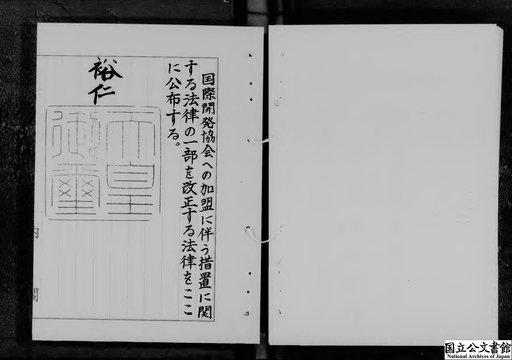 国際開発協会への加盟に伴う措置に関
する法律の一部を改正する法律をここ
に公布する。
裕仁
天皇
御璽
内
閣
国立公文書館
National Archives of Japan